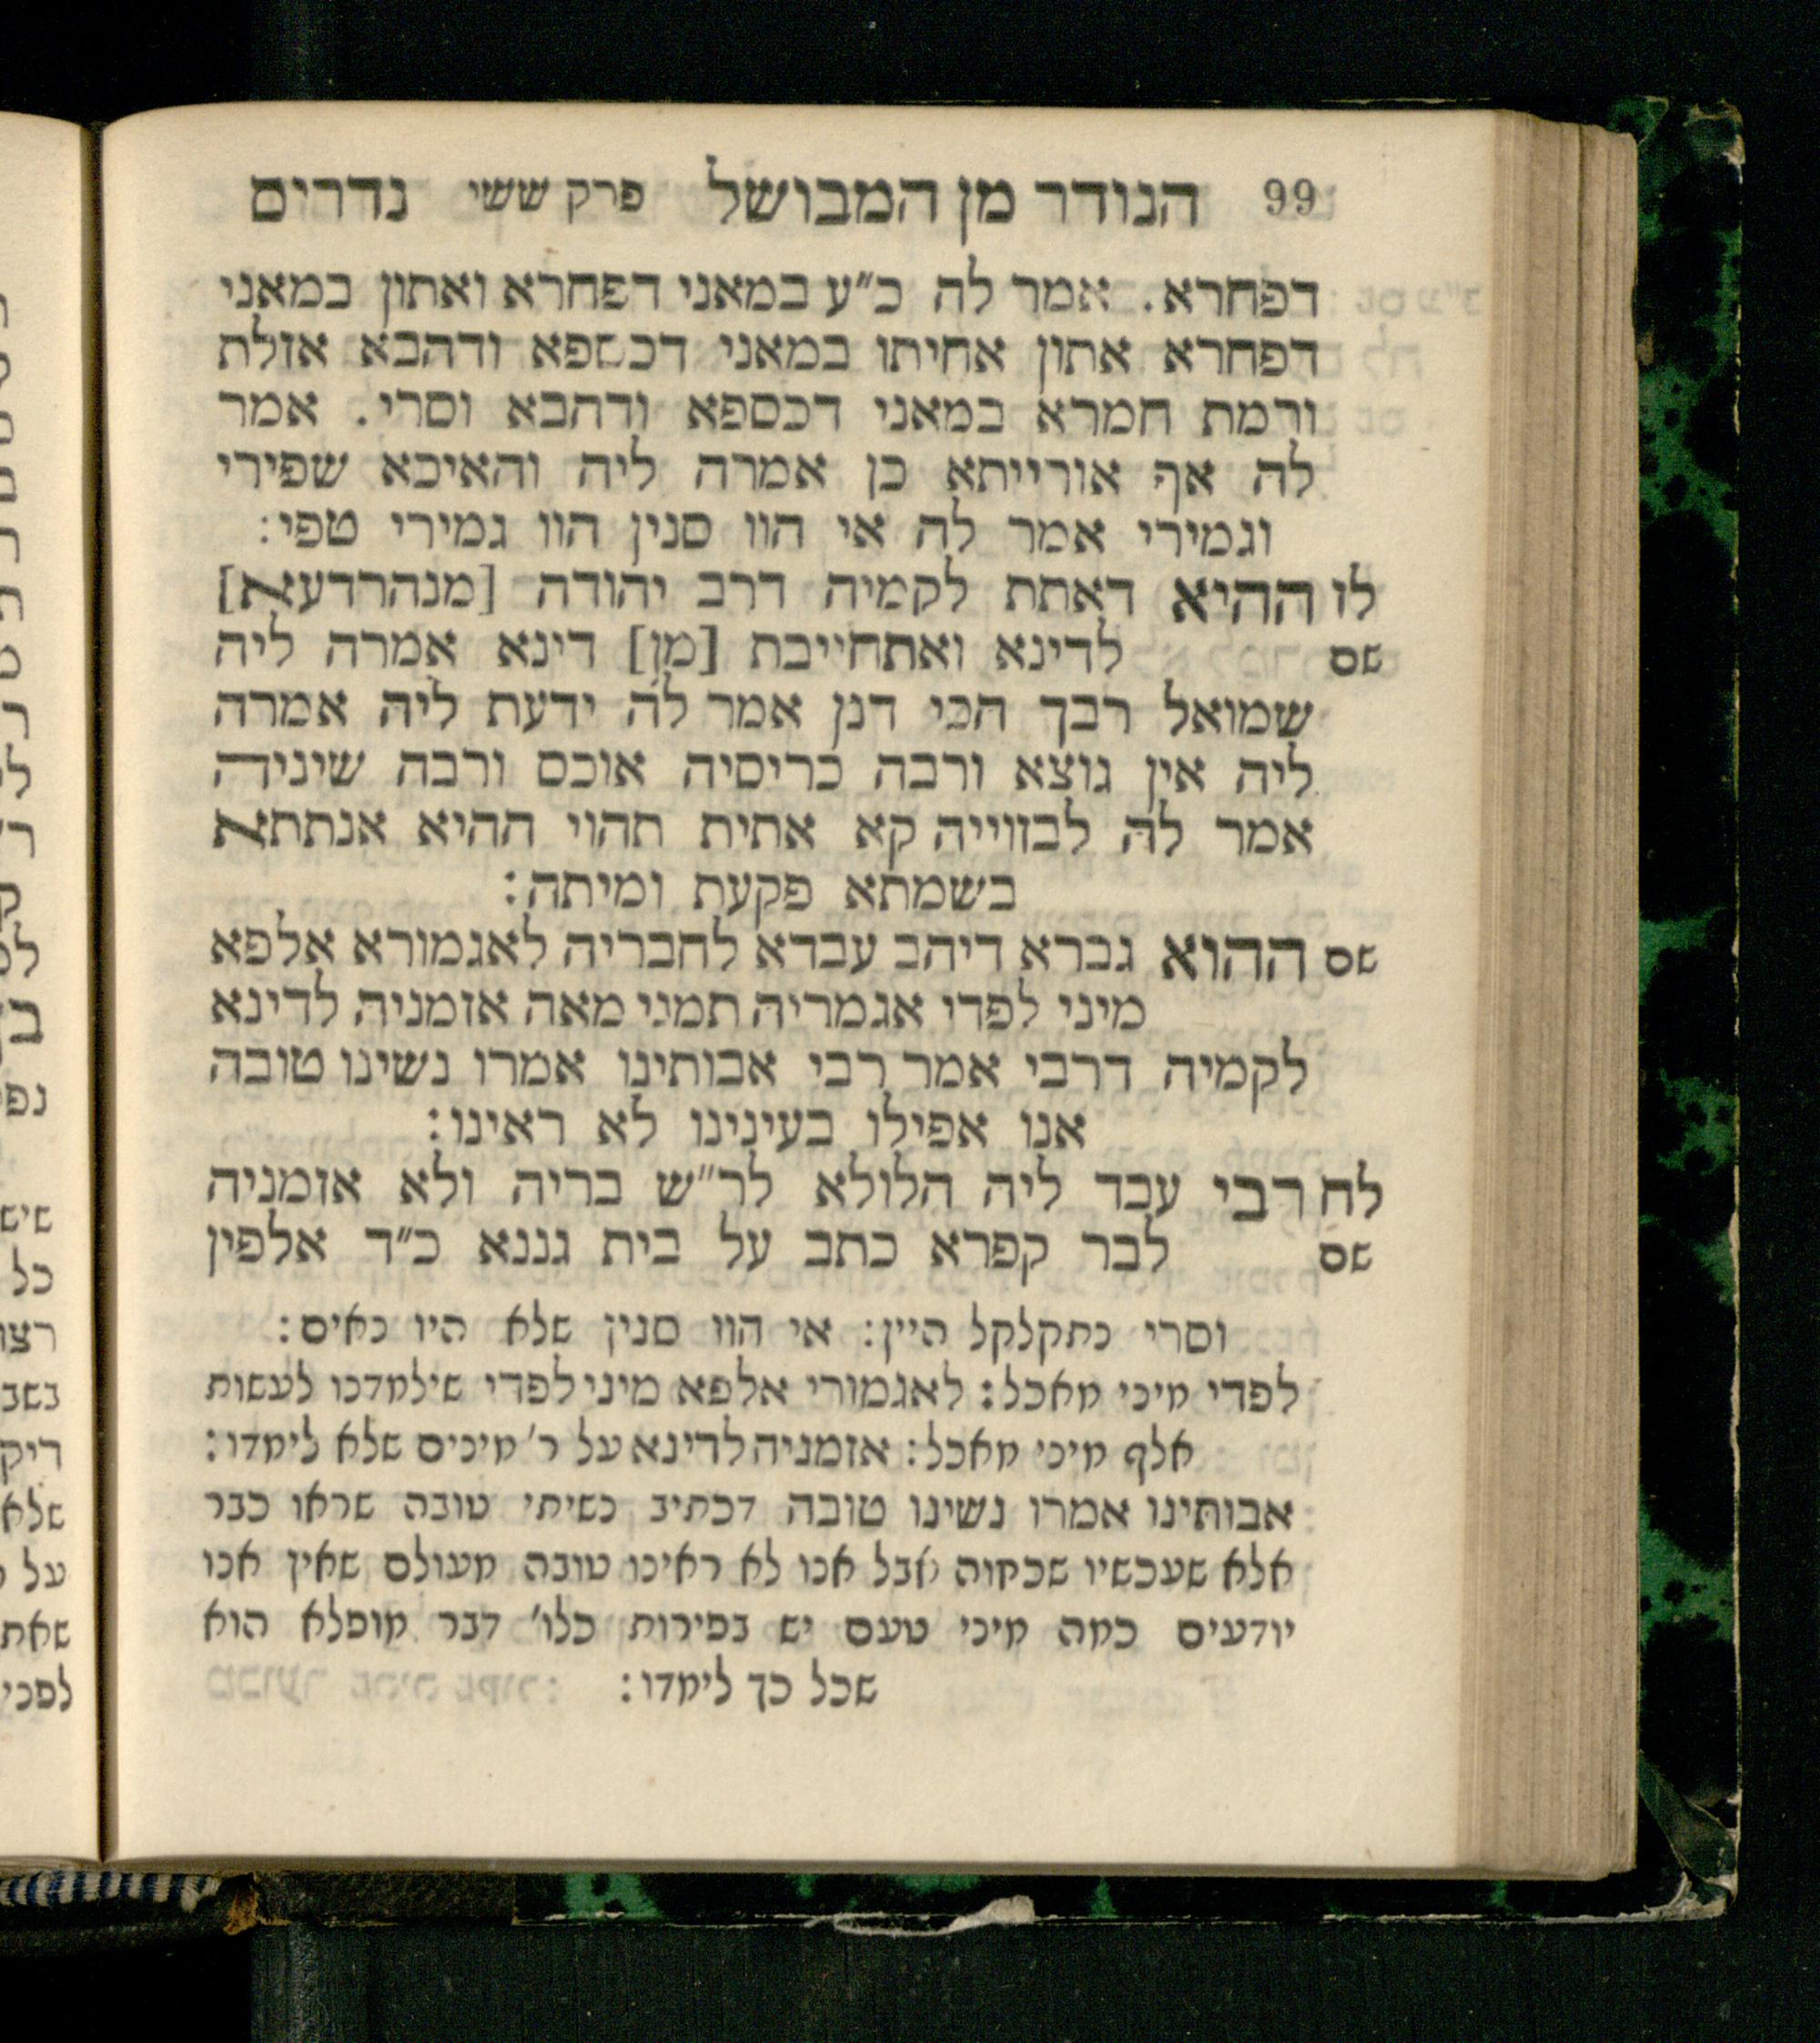 99 הנודר מן המבושל פרק ששי נדרים
דפחרא. אמר לה כ״ע במאני דפחרא ואתון במאני
דפחרא אתון אחיתו במאני דכספא ודהבא אזלת
ורמת חמרא במאני דכספא ודהבא וסרי. אמר
לה אף אורייתא כן אמרה ליה והאיכא שפירי
וגמירי אמר לה אי הוו סנין הוו גמירי טפי:
לו ההיא דאתת לקמיה דרב יהודה [מנהרדעא]
שם לדינא ואתחייבת [מן] דינא אמרה ליה
שמואל רבך הכי דנן אמר לה ידעת ליה אמרה
ליה אין גוצא ורבה כריסיה אוכם ורבה שיניה
אמר לה לבזוייה קא אתית תהוי ההיא אנתתא
בשמתא פקעת ומיתה:
שם ההוא גברא דיהב עבדא לחבריה לאגמורא אלפא
מיני לפדי אגמריה תמני מאה אזמניה לדינא
לקמיה דרבי אמר רבי אבותינו אמרו נשינו טובה
אנו אפילו בעינינו לא ראינו:
לח רבי עבד ליה הלולא לר״ש בריה ולא אזמניה
שם לבר קפרא כתב על בית גננא כ״ד אלפין
וסרי נתקלקל היין: אי הוו סנין שלא היו נאים:
לפדי מיני מאכל: לאגמורי אלפא מיני לפדי שילמדנו לעשות
אלף מיני מאכל: אזמניה לדינא על ר׳ מינים שלא לימדו:
אבותינו אמרו נשינו טובה דכתיב נשיתי טובה שראו כבר
אלא שעכשיו שכחוה אבל אנו לא ראינו טובה מעולם שאין אנו
יודעים כמה מיני טעם יש בפירות כלו׳ דבר מופלא הוא
שכל כך לימדו: